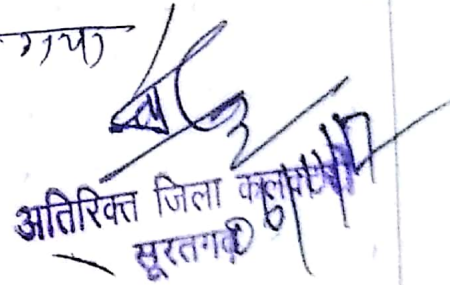 गया
अतिरिक्त जिला कलक्टर
सूरतगढ़